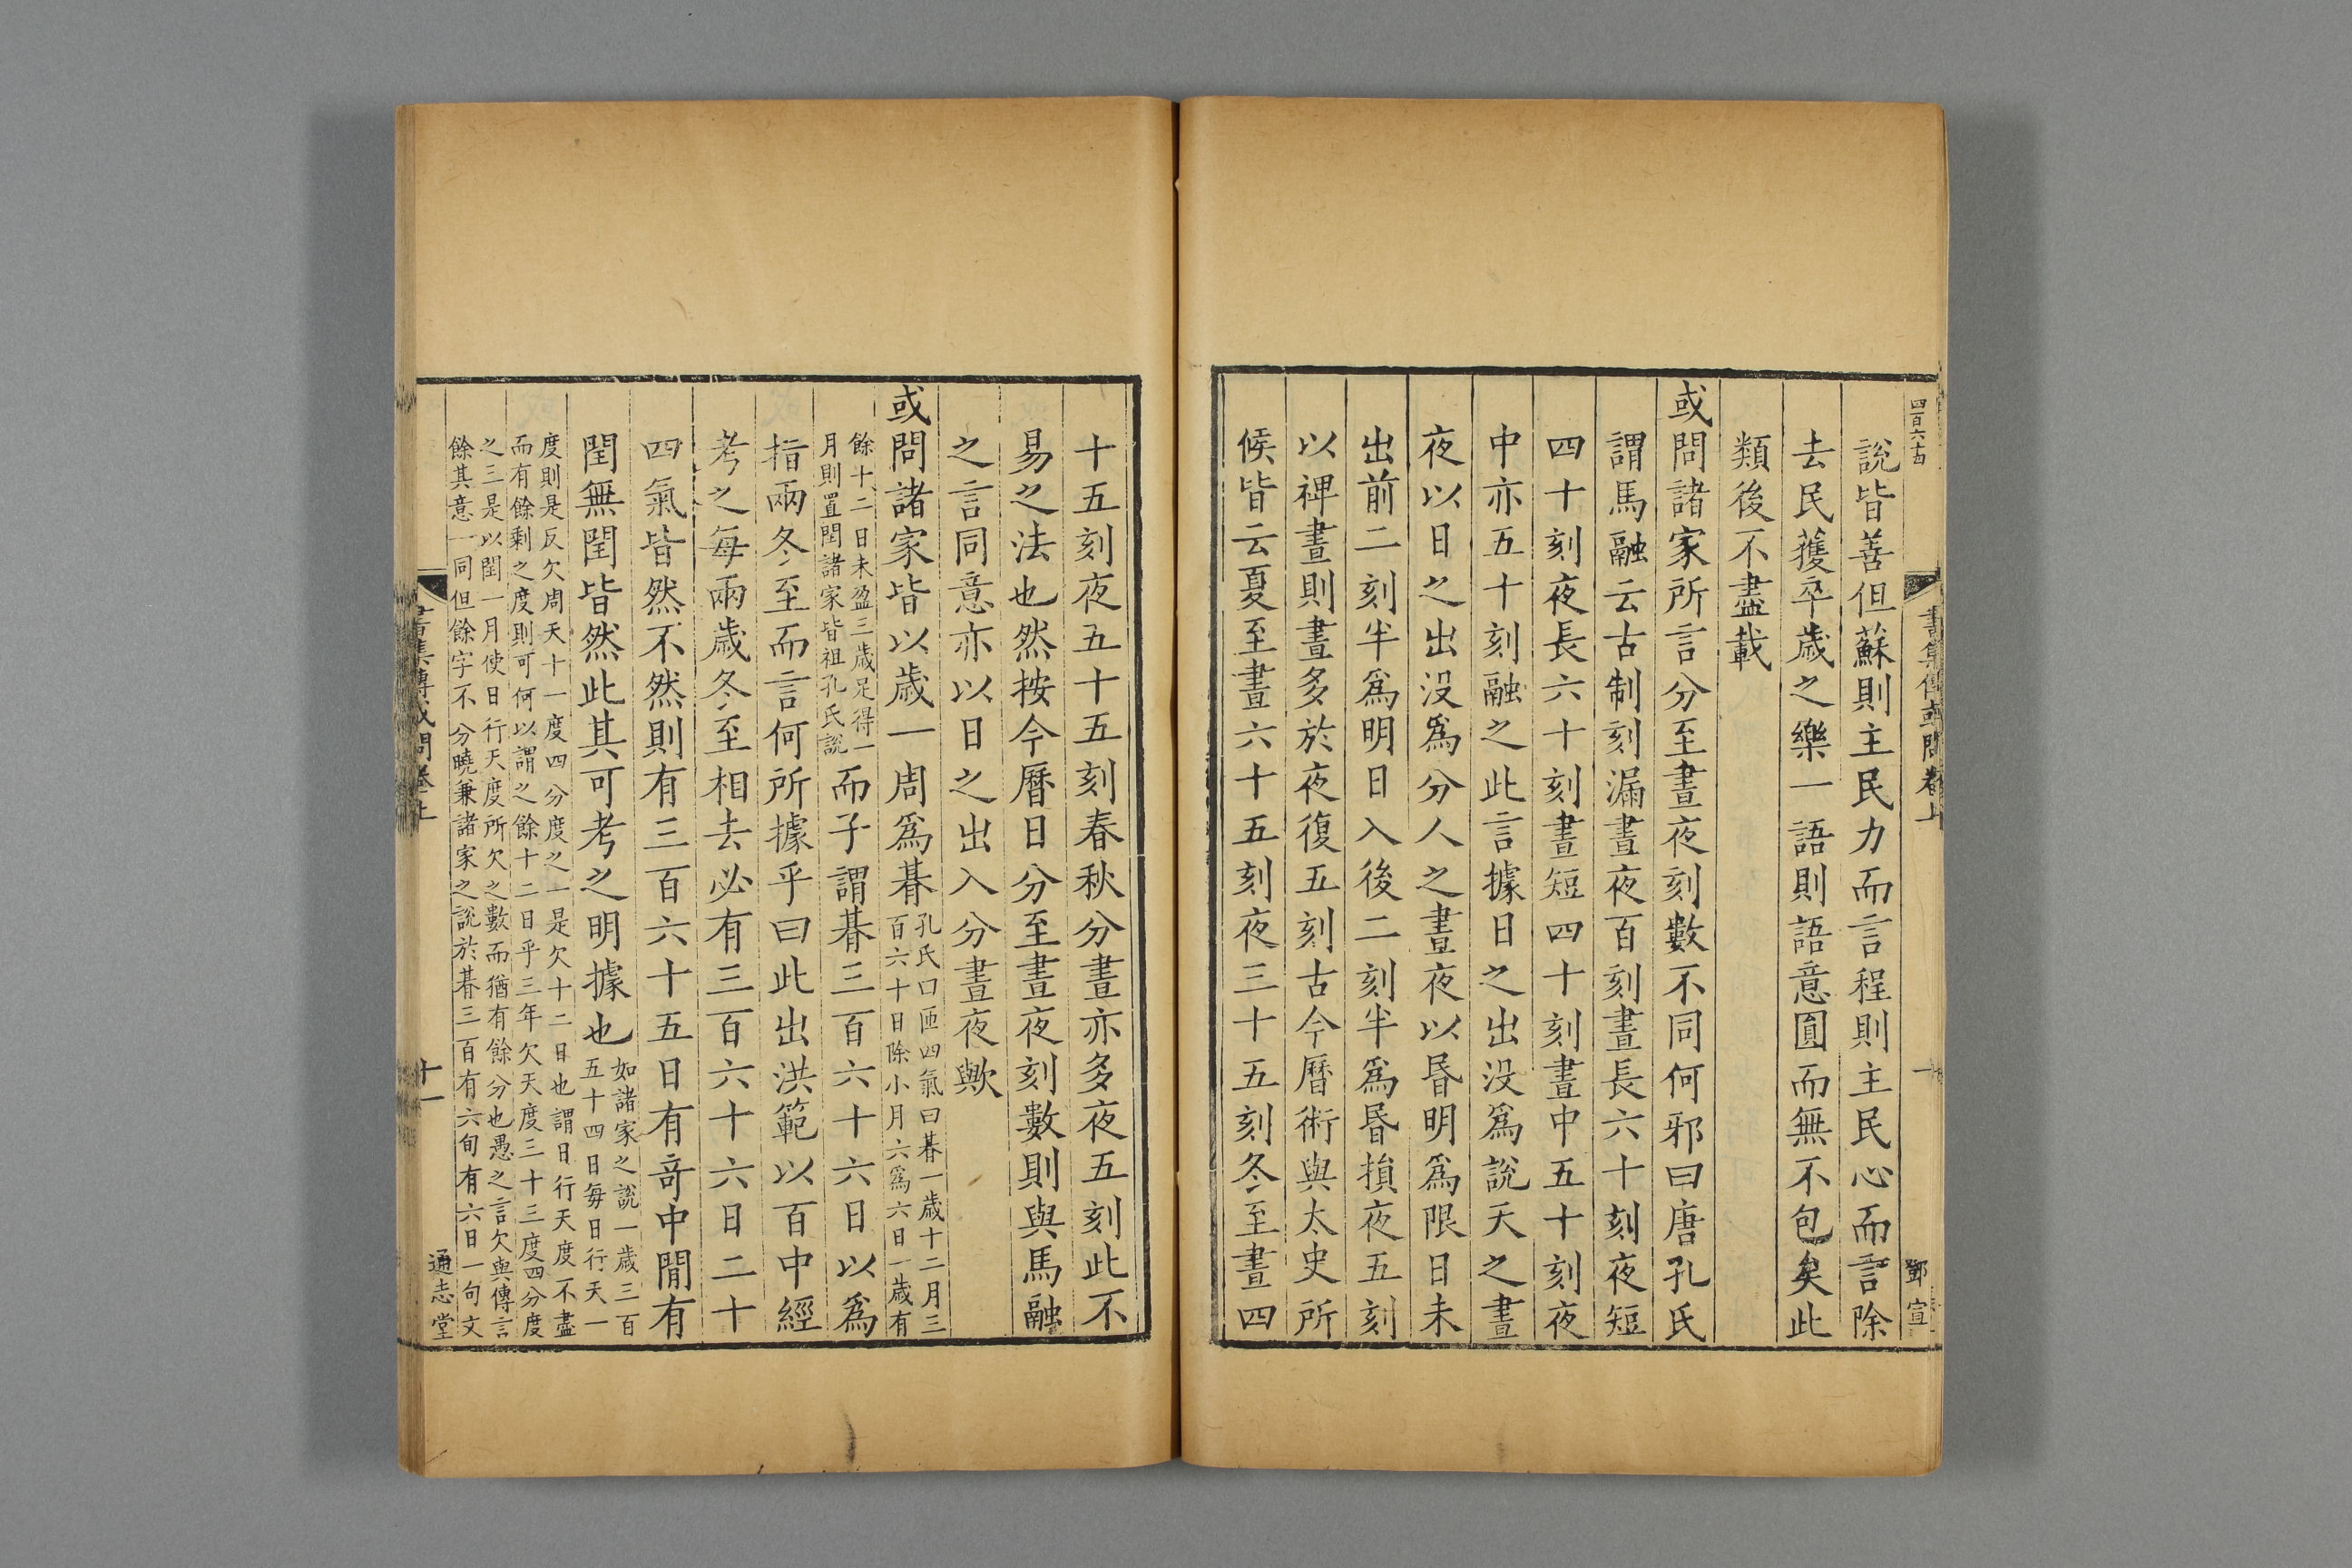 四百六十四
書集傳或問卷上
鄧宣
說皆善但蘇則主民力而言程則主民心而言除
去民獲卒歲之樂一語則語意圓而無不包矣此
類後不盡載
或問諸家所言分至晝夜刻數不同何邪曰唐孔氏
謂馬融云古制刻漏晝夜百刻晝長六十刻夜短
四十刻夜長六十刻晝短四十刻晝中五十刻夜
中亦五十刻融之此言據日之出没爲說天之晝
夜以日之出没爲分人之晝夜以昬明爲限日未
出前二刻半爲明日入後二刻半爲昬損夜五刻
以裨晝則晝多於夜復五刻古今曆術與太史所
候皆云夏至晝六十五刻夜三十五刻冬至晝四
十五刻夜五十五刻春秋分晝亦多夜五刻此不
易之法也然按今曆日分至晝夜刻數則與馬融
之言同意亦以日之出入分晝夜歟
或問諸家皆以歲一周爲朞孔氏曰匝四氣曰朞一歲十二月三
百六十日除小月六爲六日一歲有
餘十二日未盈三歲足得一
月則置閏諸家皆祖孔氏說而子謂朞三百六十六日以爲
指兩冬至而言何所據乎曰此出洪範以百中經
考之每兩歲冬至相去必有三百六十六日二十
四氣皆然不然則有三百六十五日有竒中閒有
閏無閏皆然此其可考之明據也如諸家之說一歲三百
五十四日每日行天一
度則是反欠周天十一度四分度之一是欠十二日也謂日行天度不盡
而有餘剩之度則可何以謂之餘十二日乎三年欠天度三十三度四分度
之三是以閏一月使日行天度所欠之數而猶有餘分也愚之言欠與傳言
餘其意一同但餘字不分曉兼諸家之說於朞三百有六旬有六日一句文
書集傳或問卷上
十一
通志堂